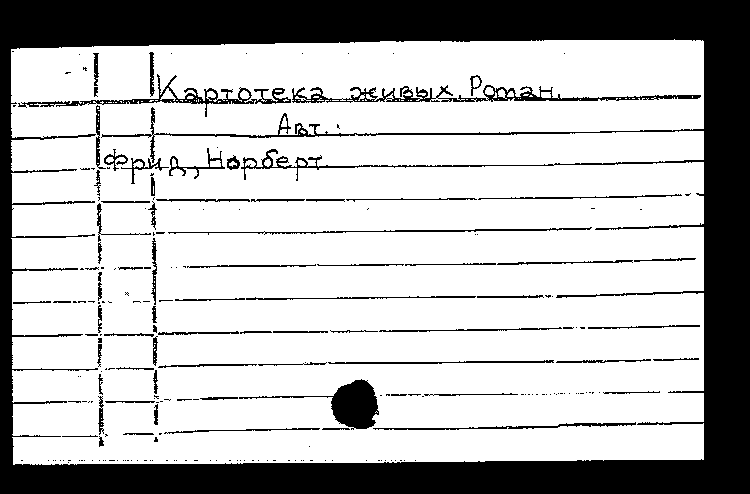 Картотека живых. Роман.
Авт.:
Фрид, Норберт